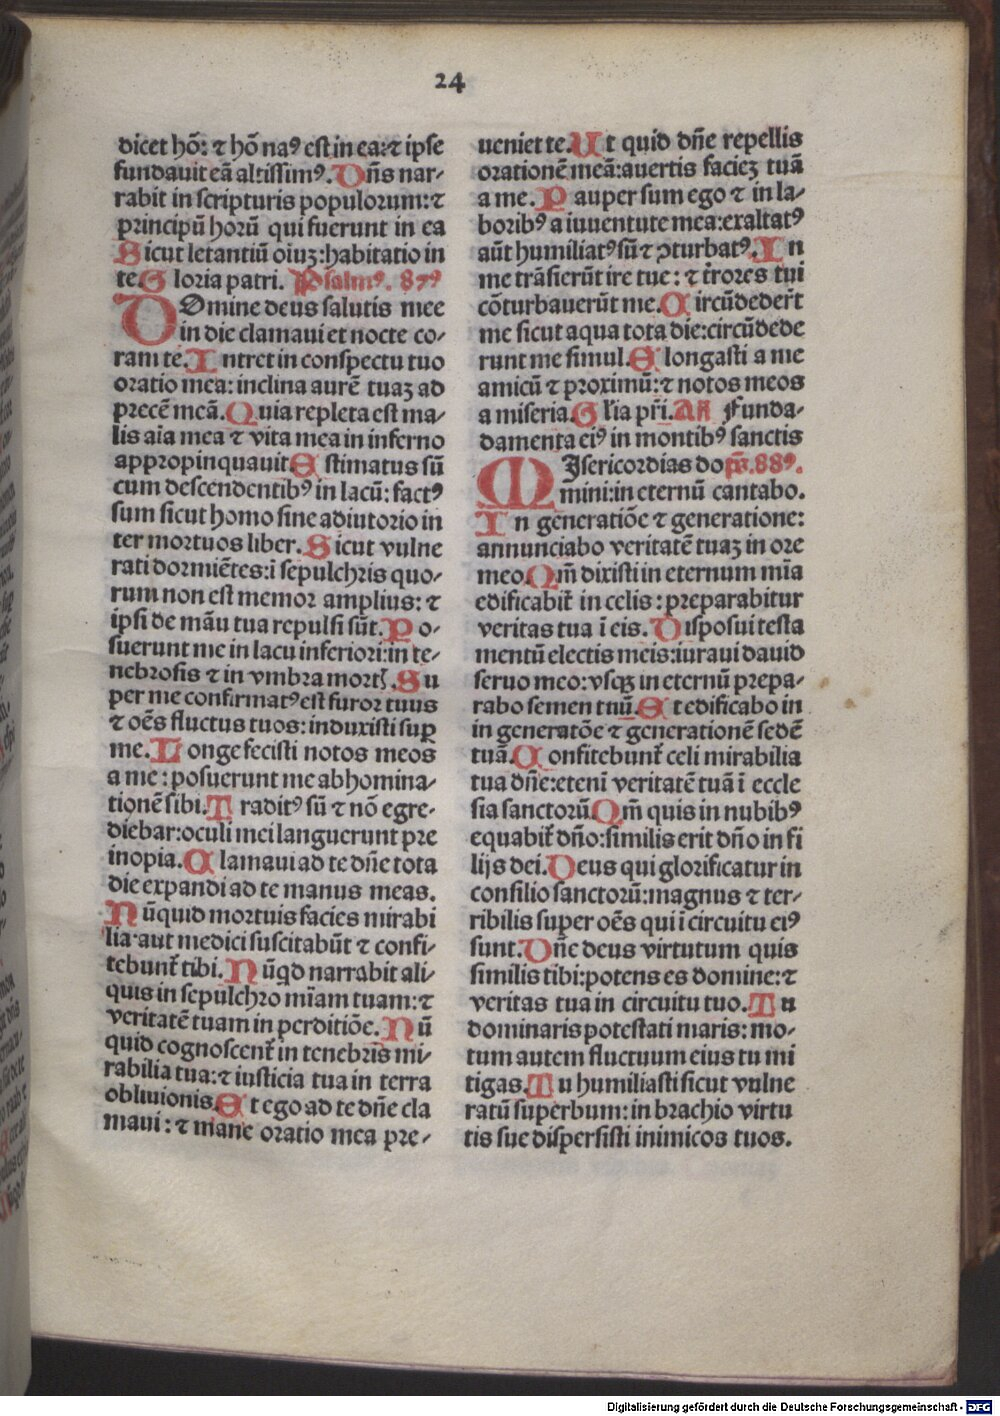 24
dicet hō: ⁊ hō naꝰ est in ea: ⁊ ipse
fundauit eā altissimꝰ. Dn̄s nar-
rabit in scripturis populorum: ⁊
principū horū qui fuerunt in ea
Sicut letantiū oīuꝫ: habitatio in
te Gloria patri. Psalmꝰ. 87ꝰ
DOmine deus salutis mee
in die clamaui et nocte co-
ram te. Intret in conspectu tuo
oratio mea: inclina aurē tuaꝫ ad
precē meā. Quia repleta est ma-
lis aīa mea ⁊ vita mea in inferno
appropinquauit Estimatus sū
cum descendentibꝰ in lacū: factꝰ
sum sicut homo sine adiutorio in
ter mortuos liber. Sicut vulne
rati dormiētes: ī sepulchris quo-
rum non est memor amplius: ⁊
ipsi de māu tua repulsi sūt. Po-
suerunt me in lacu inferiori: in te-
nebrosis ⁊ in vmbra mortꝭ. Su
per me confirmatꝰ est furor tuus
⁊ oēs fluctus tuos: induxisti sup̄
me. Longe fecisti notos meos
a me: posuerunt me abhomina-
tionē sibi. Traditꝰ sū ⁊ nō egre-
diebar: oculi mei languerunt pre
inopia. Clamaui ad te dn̄e tota
die expandi ad te manus meas.
Nūquid mortuis facies mirabi
lia aut medici suscitabūt ⁊ confi-
tebunt̄ tibi. Nūqd narrabit ali-
quis in sepulchro mīam tuam: ⁊
veritatē tuam in perditiōe. Nū
quid cognoscent̄ in tenebris mi-
rabilia tua: ⁊ iusticia tua in terra
obliuionis. Et ego ad te dn̄e cla
maui: ⁊ mane oratio mea pre-
ueniet te. Ut quid dn̄e repellis
orationē meā: auertis facieꝫ tuā
a me. Pauper sum ego ⁊ in la-
boribꝰ a iuuentute mea: exaltatꝰ
aūt humiliatꝰ sū ⁊ ꝯturbatꝰ. In
me trāsierūt ire tue: ⁊ t̄rores tui
cōturbauerūt me. Circūdeder̄t
me sicut aqua tota die: circūdede
runt me simul. Elongasti a me
amicū ⁊ proximū: ⁊ notos meos
a miseria. Gl̄ia pr̄i. Añ Funda-
damenta eiꝰ in montibꝰ sanctis
MIsericordias do ps̄. 88ꝰ.
mini: in eternū cantabo.
In generatiōe ⁊ generatione:
annunciabo veritatē tuaꝫ in ore
meo. Qm̄ dixisti in eternum mīa
edificabit̄ in celis: preparabitur
veritas tua ī eis. Disposui testa
mentū electis meis: iuraui dauid
seruo meo: vsqꝫ in eternū prepa-
rabo semen tuū. Et edificabo in
in generatōe ⁊ generationē sedē
tuā. Confitebunt̄ celi mirabilia
tua dn̄e: etenī veritatē tuā ī eccle
sia sanctorū. Qm̄ quis in nubibꝰ
equabit̄ dn̄o: similis erit dn̄o in fi
lijs dei. Deus qui glorificatur in
consilio sanctorū: magnus ⁊ ter-
ribilis super oēs qui ī circuitu eiꝰ
sunt. Dn̄e deus virtutum quis
similis tibi: potens es domine: ⁊
veritas tua in circuitu tuo. Tu
dominaris potestati maris: mo-
tum autem fluctuum eius tu mi
tigas. Tu humiliasti sicut vulne
ratū superbum: in brachio virtu
tis sue dispersisti inimicos tuos.
Digitalisierung gefördert durch die Deutsche Forschungsgemeinschaft - DFG